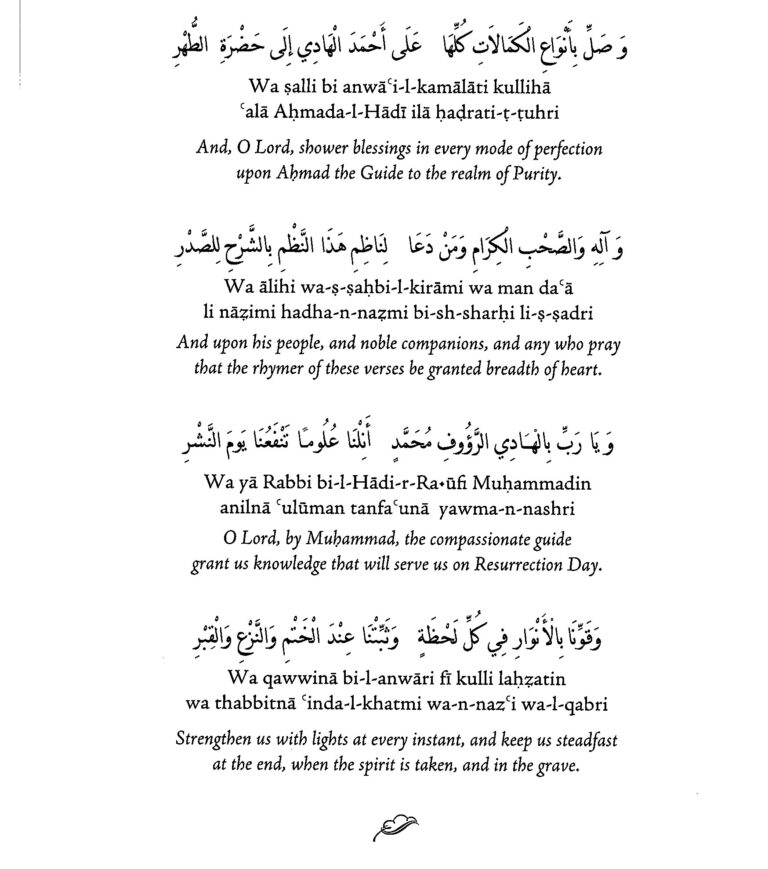 وَ صَلِّ بِأَنْوَاعِ الْكَمَالَاتِ كُلِّهَا عَلَى أَحْمَدَ الْهَادِي إِلَى حَضْرَةِ الطُّهْرِ
Wa ṣalli bi anwāʿi-l-kamālāti kullihā
ʿalā Aḥmada-l-Hādī ilā ḥaḍrati-ṭ-ṭuhri
And, O Lord, shower blessings in every mode of perfection
upon Aḥmad the Guide to the realm of Purity.
وَ آلِهِ وَالصَّحْبِ الْكِرَامِ وَمَنْ دَعَا لِنَاظِمِ هَذَا النَّظْمِ بِالشَّرْحِ لِلصَّدْرِ
Wa ālihi wa-ṣ-ṣaḥbi-l-kirāmi wa man daʿā
li nāẓimi hadha-n-naẓmi bi-sh-sharḥi li-ṣ-ṣadri
And upon his people, and noble companions, and any who pray
that the rhymer of these verses be granted breadth of heart.
وَ يَا رَبِّ بِالْهَادِي الرَّؤُوفِ مُحَمَّدٍ أَنِلْنَا عُلُومًا تَنْفَعُنَا يَومَ النَّشْرِ
Wa yā Rabbi bi-l-Hādi-r-Ra•ūfi Muḥammadin
anilnā ʿulūman tanfaʿunā yawma-n-nashri
O Lord, by Muḥammad, the compassionate guide
grant us knowledge that will serve us on Resurrection Day.
وَقَوِّنَا بِالْأَنْوَارِ فِي كُلِّ لَحْظَةٍ وَثَبِّتْنَا عِنْدَ الْخَتْمِ وَالنَّزْعِ وَالْقِبْرِ
Wa qawwinā bi-l-anwāri fī kulli laḥẓatin
wa thabbitnā ʿinda-l-khatmi wa-n-nazʿi wa-l-qabri
Strengthen us with lights at every instant, and keep us steadfast
at the end, when the spirit is taken, and in the grave.